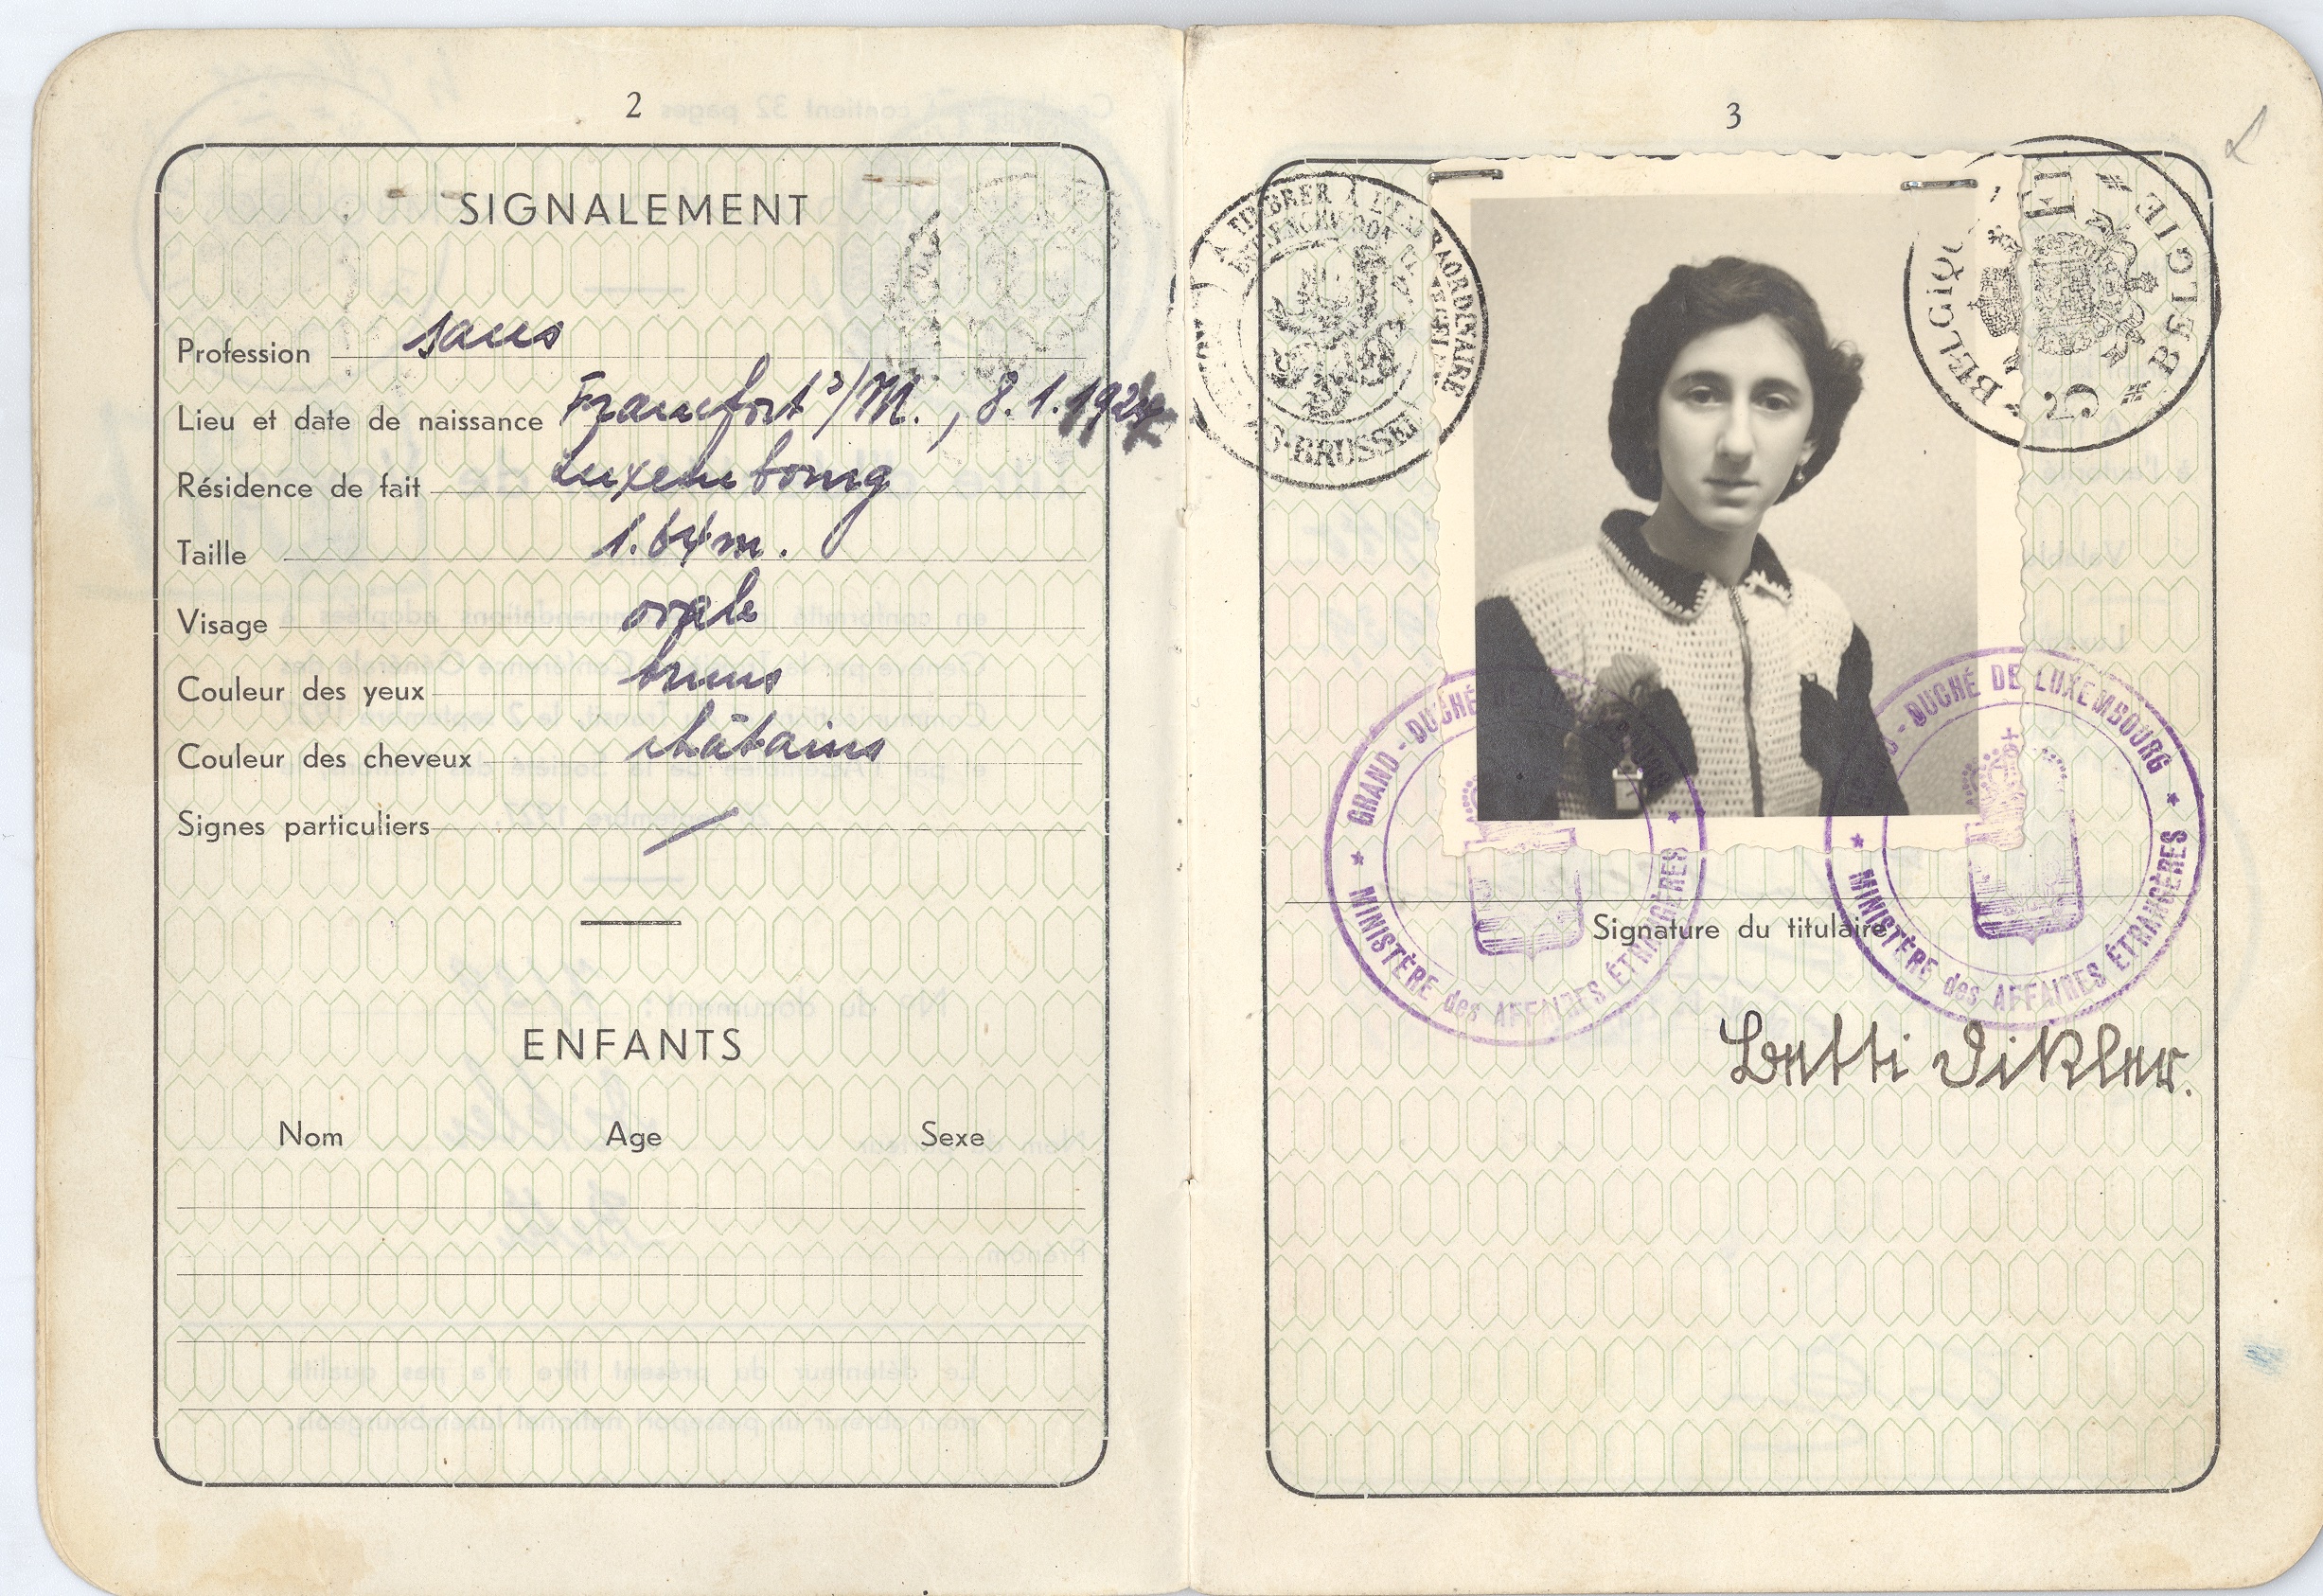 2
SIGNALEMENT
Profession sans
Lieu et date de naissance Francfort s/M., 8.1.1924
Résidence de fait Luxembourg
Taille 1.64 m.
Visage ovale
Couleur des yeux bruns
Couleur des cheveux châtains
Signes particuliers /
ENFANTS
Nom Age Sexe
3
A TIMBRER À L'EXTRAORDINAIRE
BRUSSEL
BELGIQUE
BELGIE
5
GRAND-DUCHÉ
MINISTÈRE des AFFAIRES ÉTRANGÈRES
GRAND-DUCHÉ DE LUXEMBOURG
MINISTÈRE des AFFAIRES ÉTRANGÈRES
Signature du titulaire
Betti Dikler.